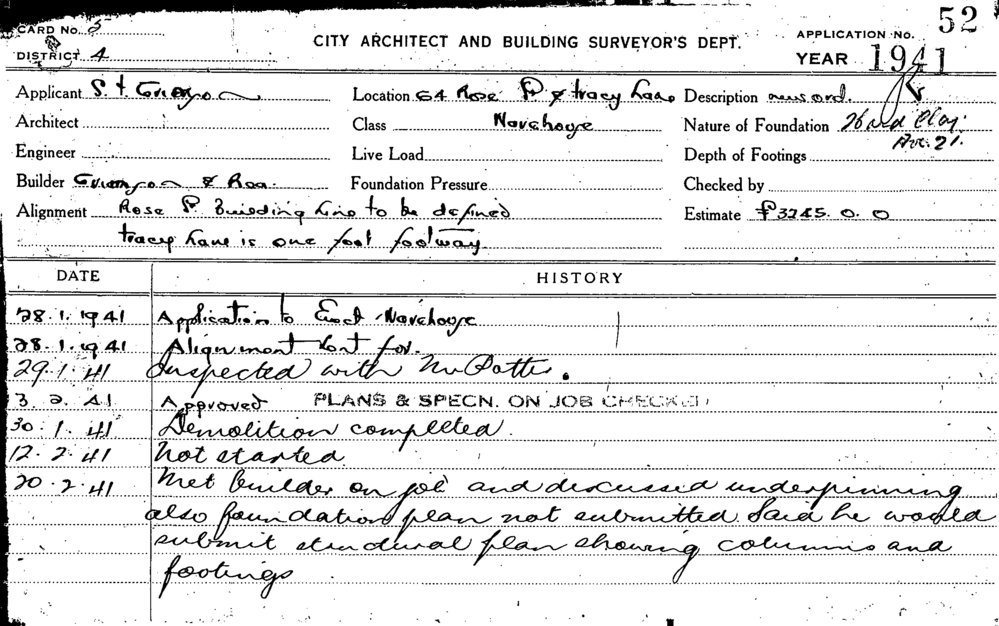 52
CARD No. 5
APPLICATION No.
CITY ARCHITECT AND BUILDING SURVEYOR'S DEPT.
DISTRICT 4
YEAR 1941
Applicant S. T. Location 64 Rose St & Tracy Lane Description new ord.
Architect Class Warehouse Nature of Foundation Hard Clay.
Engineer Live Load Depth of Footings
Builder & Foundation Pressure Checked by
Alignment Rose St. Building Line to be defined Estimate £3245. 0. 0
Tracy Lane is one foot footway
DATE HISTORY
28. 1. 1941 Application to Erect Warehouse
28. 1. 1941 Alignment for.
29. 1. 41 Inspected with Mr
3. 2. 41 Approved PLANS & SPECN. ON JOB CHECKED
30. 1. 41 Demolition completed.
12. 2. 41 Not started
20. 2. 41 Met builder on job and discussed underpinning
also foundation plan not submitted. Said he would
submit structural plan showing columns and
footings